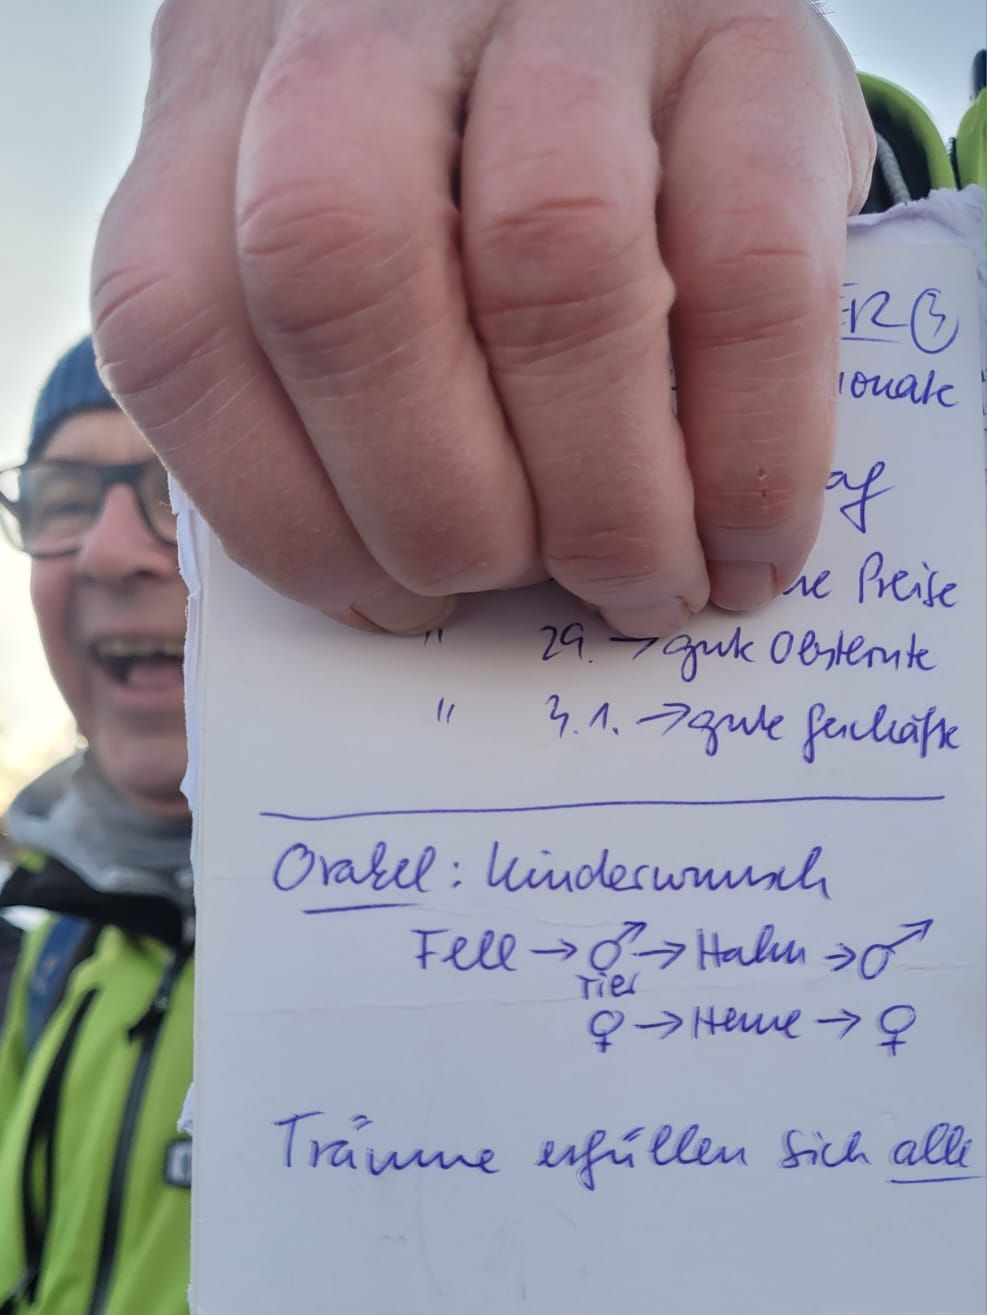 ER ③
onate
af
ne Preise
" 29. → gute Obsternte
" 3.1. → gute Geschäfte
Orakel: Kinderwunsch
Fell → ♂ → Hahn → ♂
Tier
♀ → Henne → ♀
Träume erfüllen sich alle